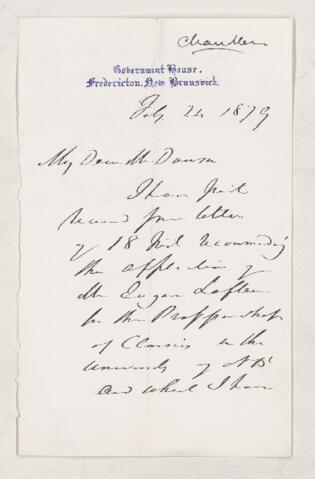 Chandler
Government House,
Fredericton, New Brunswick.
Feby 24 1879
My Dear Mr Dawson
I have just
received your letter
of 18 Inst recommending
the application of
Mr Eugene Lafleur
for the Professorship
of Classics in the
University of NB
and while I have